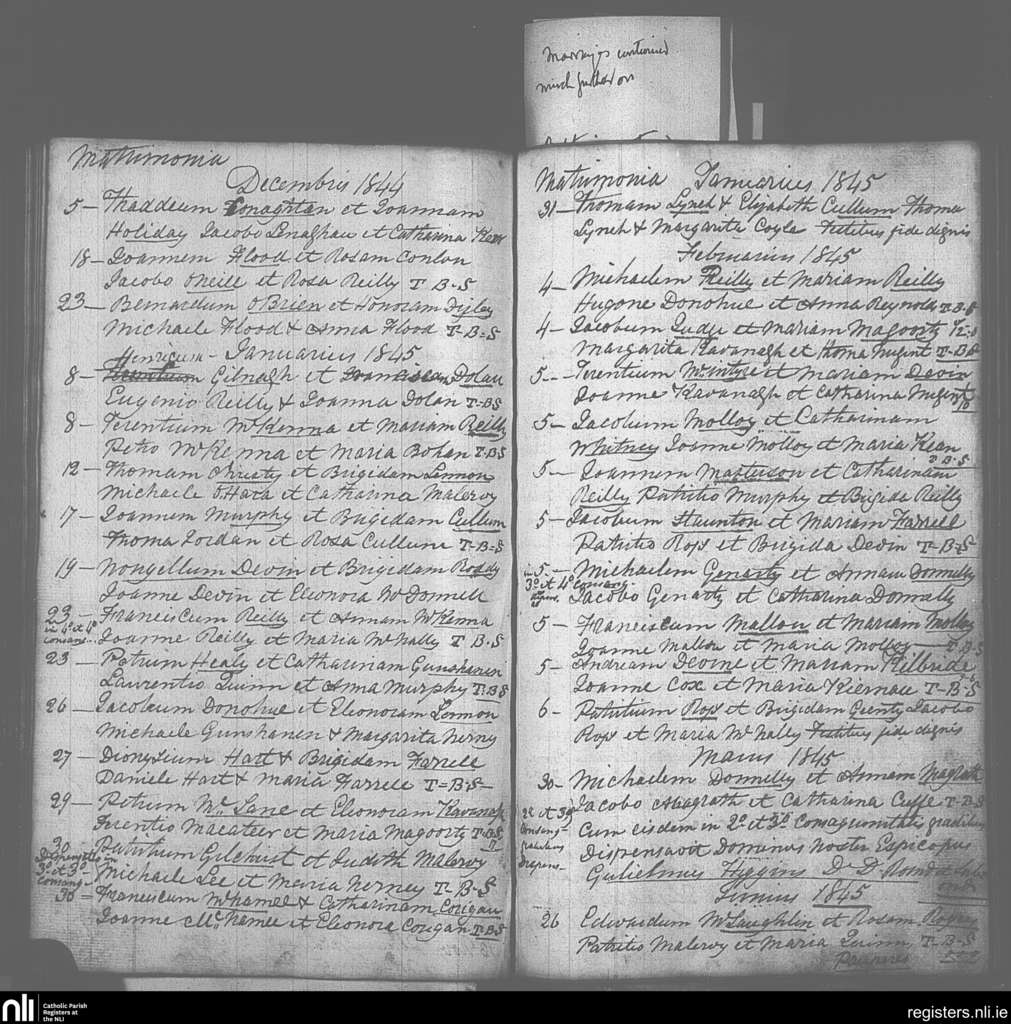 Marriages continued
much further on
Matrimonia
Decembris 1844
5 - Thaddeum Conaghtan et Joannam
Holiday Jacobo Lenaghan et Catharina
18 - Joannem Flood et Rosam Conlon
Jacobo ONeill et Rosa Reilly T-B-S
23 - Bernardum OBrien et Honoram
Michaele Flood & Anna Flood T-B-S
Henricum - Januarius 1845
8 - Gilnagh et Dolan
Eugenio Reilly & Joanna Dolan T-B-S
8 - Terentium McKenna et Mariam Reilly
Petro McKenna et Maria Bohan T-B-S
12 - Thomam Christy et Brigidam Lennon
Michaele OHara et Catharina Maleroy
17 - Joannem Murphy et Brigidam Cullum
Thoma Jordan et Rosa Cullum T-B-S
19 - Devin et Brigidam Roddy
Joanne Devin et Eleonora McDonnell
22 - Franciscum Reilly et Annam McKenna
in 4° et 4°
consang.
Joanne Reilly et Maria McNally T B-S
23 - Petrum Healy et Catharinam Gunshanen
Laurentio Quinn et Anna Murphy T-B-S
26 - Jacobum Donohue et Eleonoram Lennon
Michaele Gunshanen & Margarita Nerny
27 - Dionysium Hart & Brigidam Farrell
Daniele Hart & Maria Farrell T-B-S-
29 - Petrum McLane et Eleonoram Kavanagh
Terentio Macateer et Maria Magoorty T-B-S
30 - Patritium Gilchrist et Judith Maleroy
in
3° et 3°
consang-
Michaele Lee et Maria Nerney T-B-S
30 - Franciscum McNamee & Catharinam Corigan
Joanne McNamee et Eleonora Corigan T-B-S
Matrimonia Januarius 1845
31 - Thomam Lynch & Elizabeth Cullum Thoma
Lynch & Margarita Coyle Testibus fide dignis
Februarius 1845
4 - Michaelem Reilly et Mariam Reilly
Hugone Donohue et Anna Reynolds T-B-S
4 - Jacobum Judge et Mariam Magoorty
Margarita Kavanagh et Thoma Nugent T-B-S
5 - Terentium McIntyre et Mariam Devin
Joanne Kavanagh et Catharina Nugent
5 - Jacobum Molloy et Catharinam
Whitney Joanne Molloy et Maria Kean
T-B-S
5 - Joannem Masterson et Catharinam
Reilly Patritio Murphy et Brigida Reilly
5 - Jacobum Staunton et Mariam Farrell
Patritio Ross et Brigida Devin T-B-S
5 - Michaelem Genarty et Annam Donnelly
in
3° et 4° consang-
Jacobo Genarty et Catharina Donnelly
5 - Franciscum Mallon et Mariam Molloy
Joanne Mallon et Maria Molloy T-B-S
5 - Andream Devine et Mariam Kilbride
Joanne Cox et Maria Kiernan T-B-S
6 - Patritium Ross et Brigidam Jacobo
Ross et Maria McNally Testibus fide dignis
Maius 1845
30 - Michaelem Donnelly et Annam Magrath
Jacobo Magrath et Catharina Cuffe T-B-S
Consang-
Cum eisdem in 2° et 3° consaguinitatis gradibus
Dispensavit Dominus Noster Episcopus
Gulielmus Higgins D. D.
Junius 1845
26 Edwardum McLaughlin et Rosam
Patritio Maleroy et Maria Quinn T-B-S
nli
Catholic Parish
Registers at
the NLI
registers.nli.ie